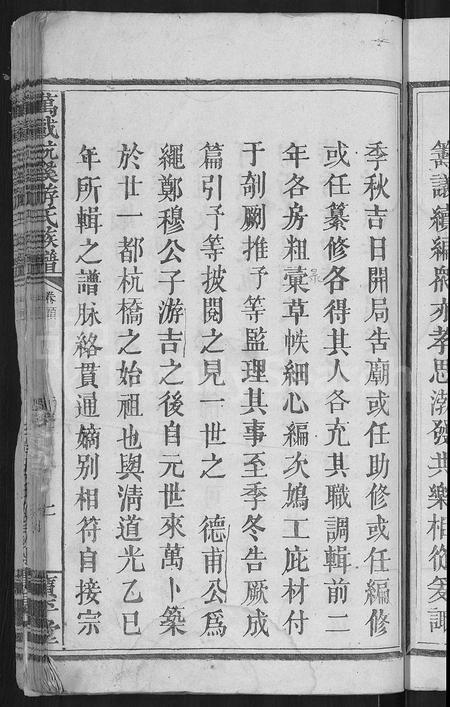 籌議續編眾亦孝思渤發共樂相從爰諏
季秋吉日開局告廟或任助修或任編修
或任纂修各得其人各充其職調輯前二
年各房粗彙草帙細心編次鳩工庇材付
于剞劂推予等監理其事至季冬告厥成
篇引予等披閱之見一世之 德甫公為
繩鄭穆公子游吉之後自元世來萬卜築
於廿一都杭橋之始祖也與清道光乙巳
年所輯之譜脉絡貫通嫡別相符自接宗
萬載杭溪游氏族譜 卷首